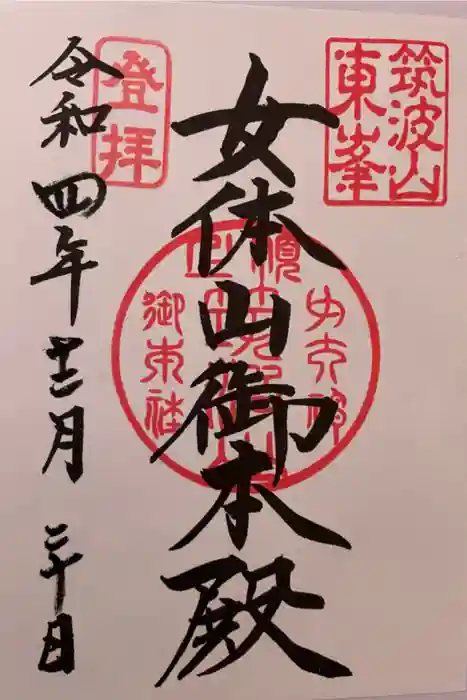 筑波山
東峯
女体山御本殿
登拝
令和四年十二月三十日
御本社